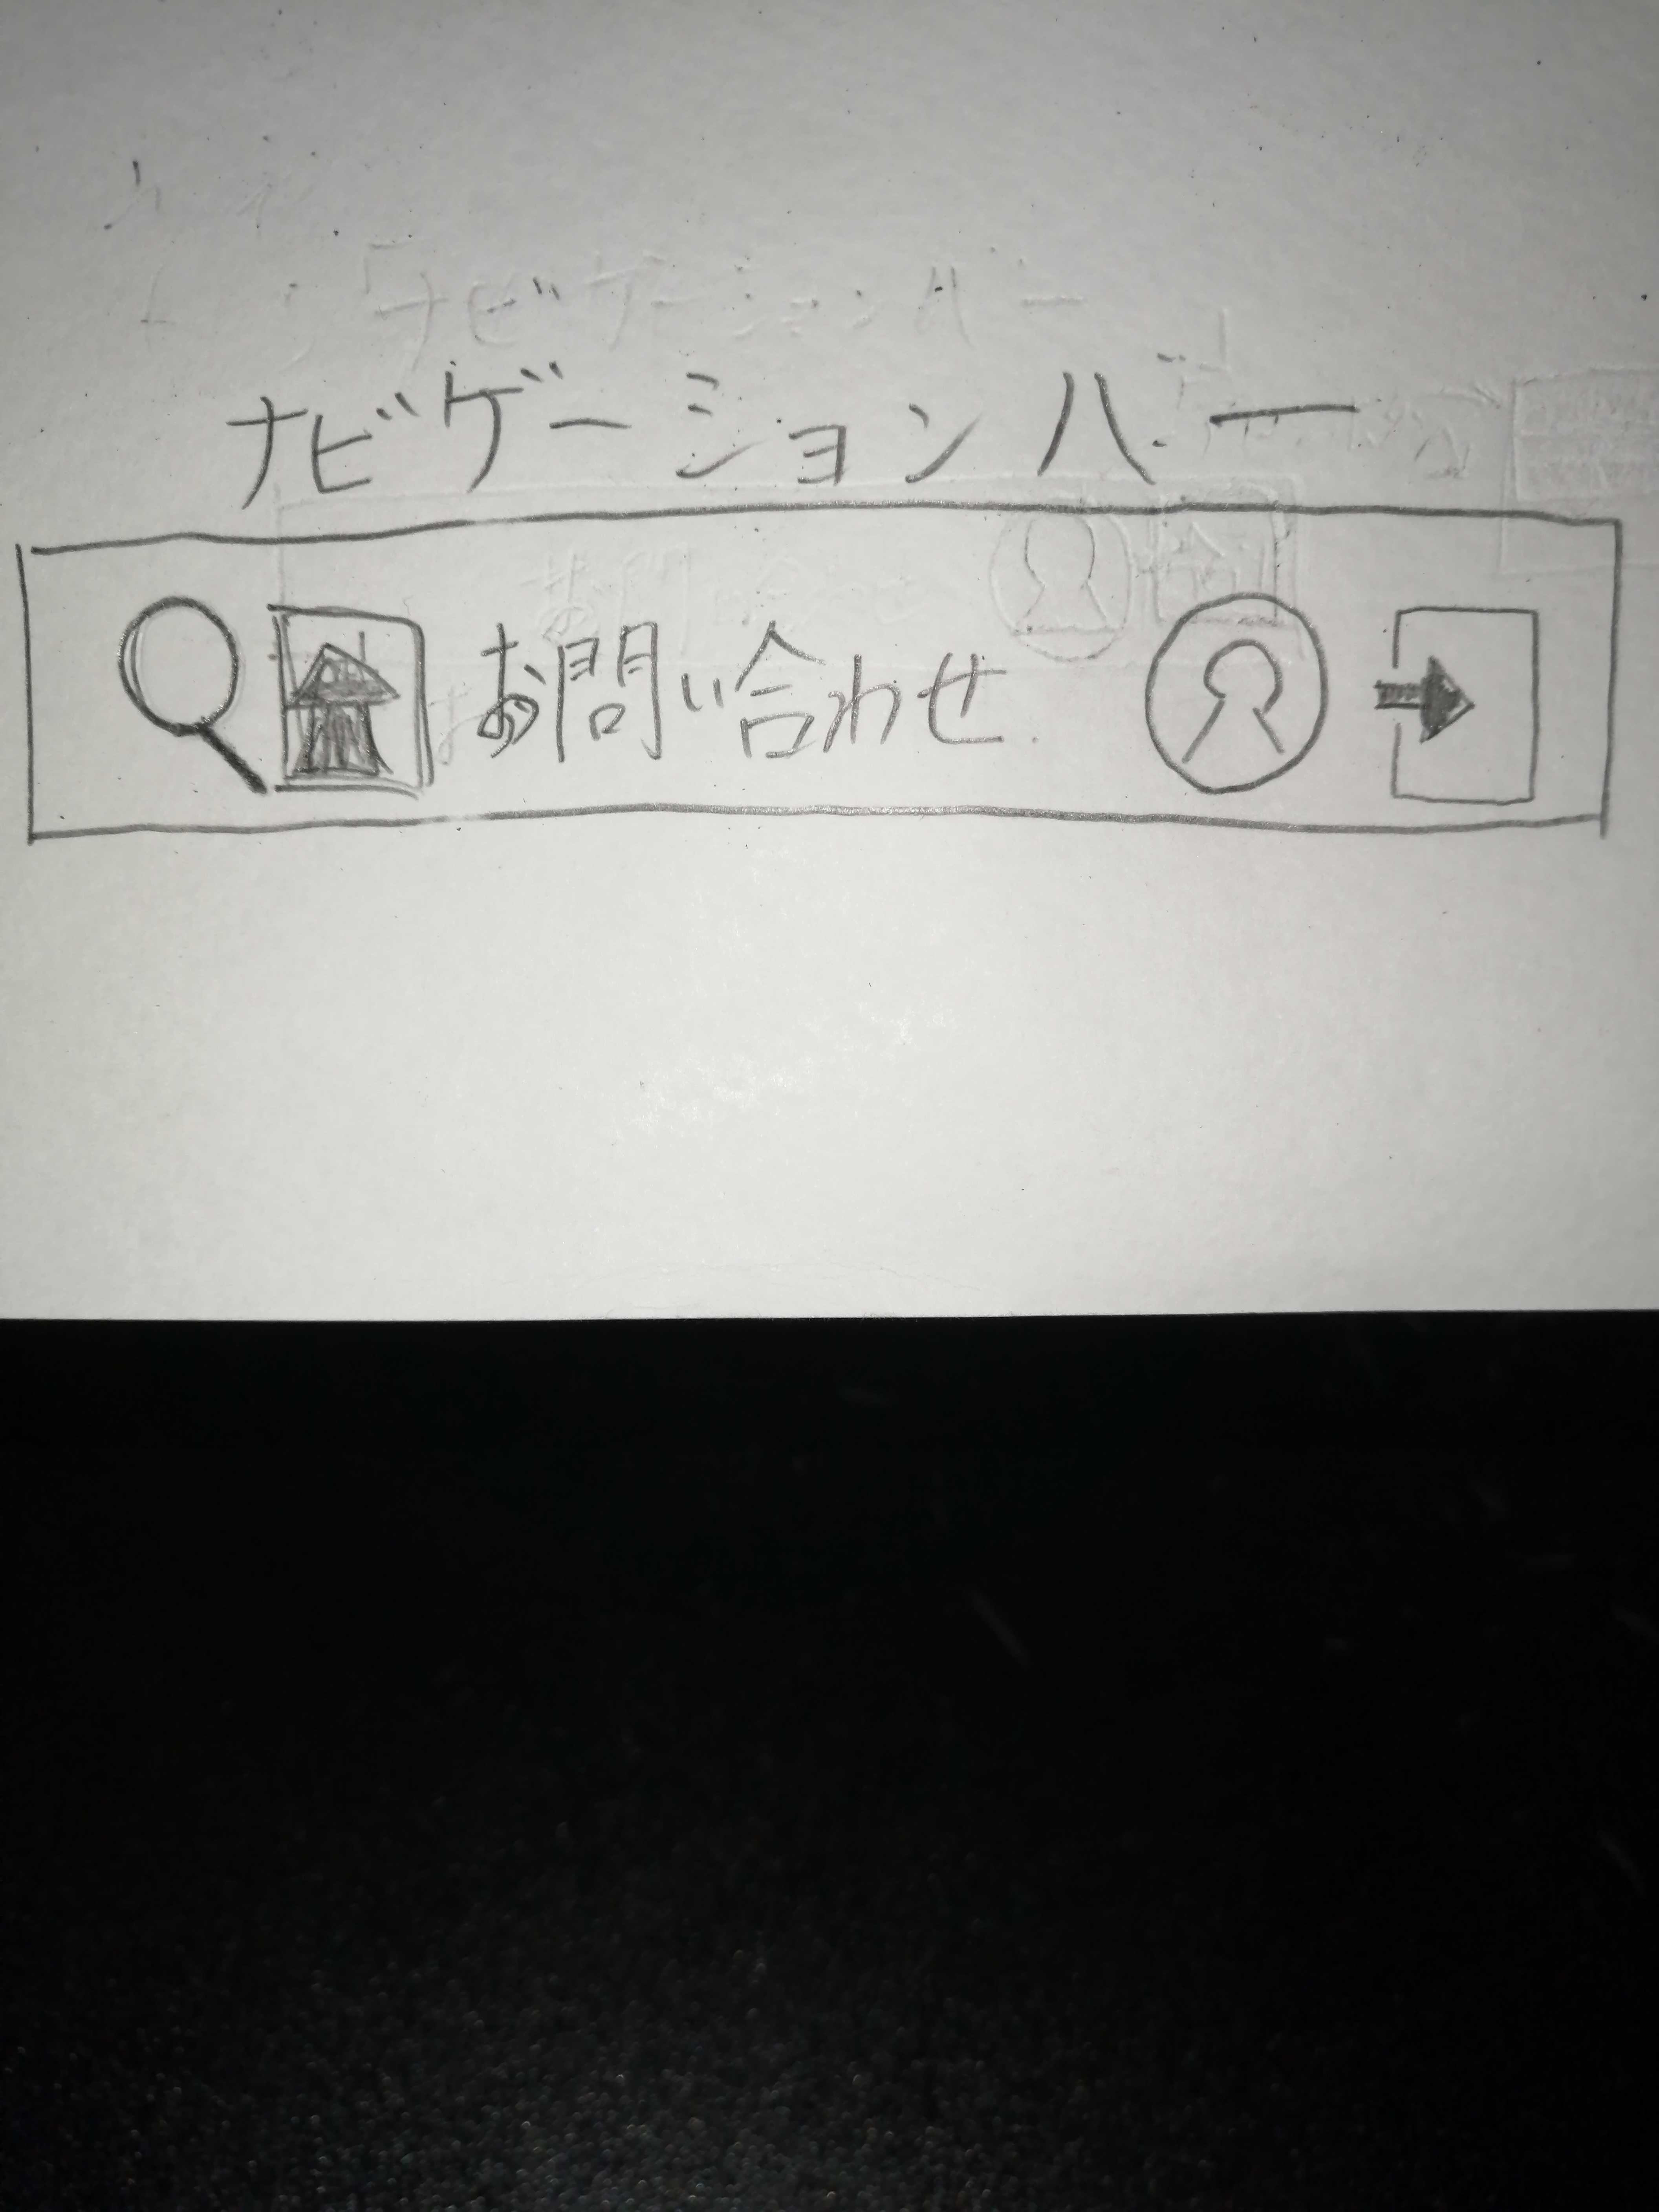 ナビゲーションバー
お問い合わせ